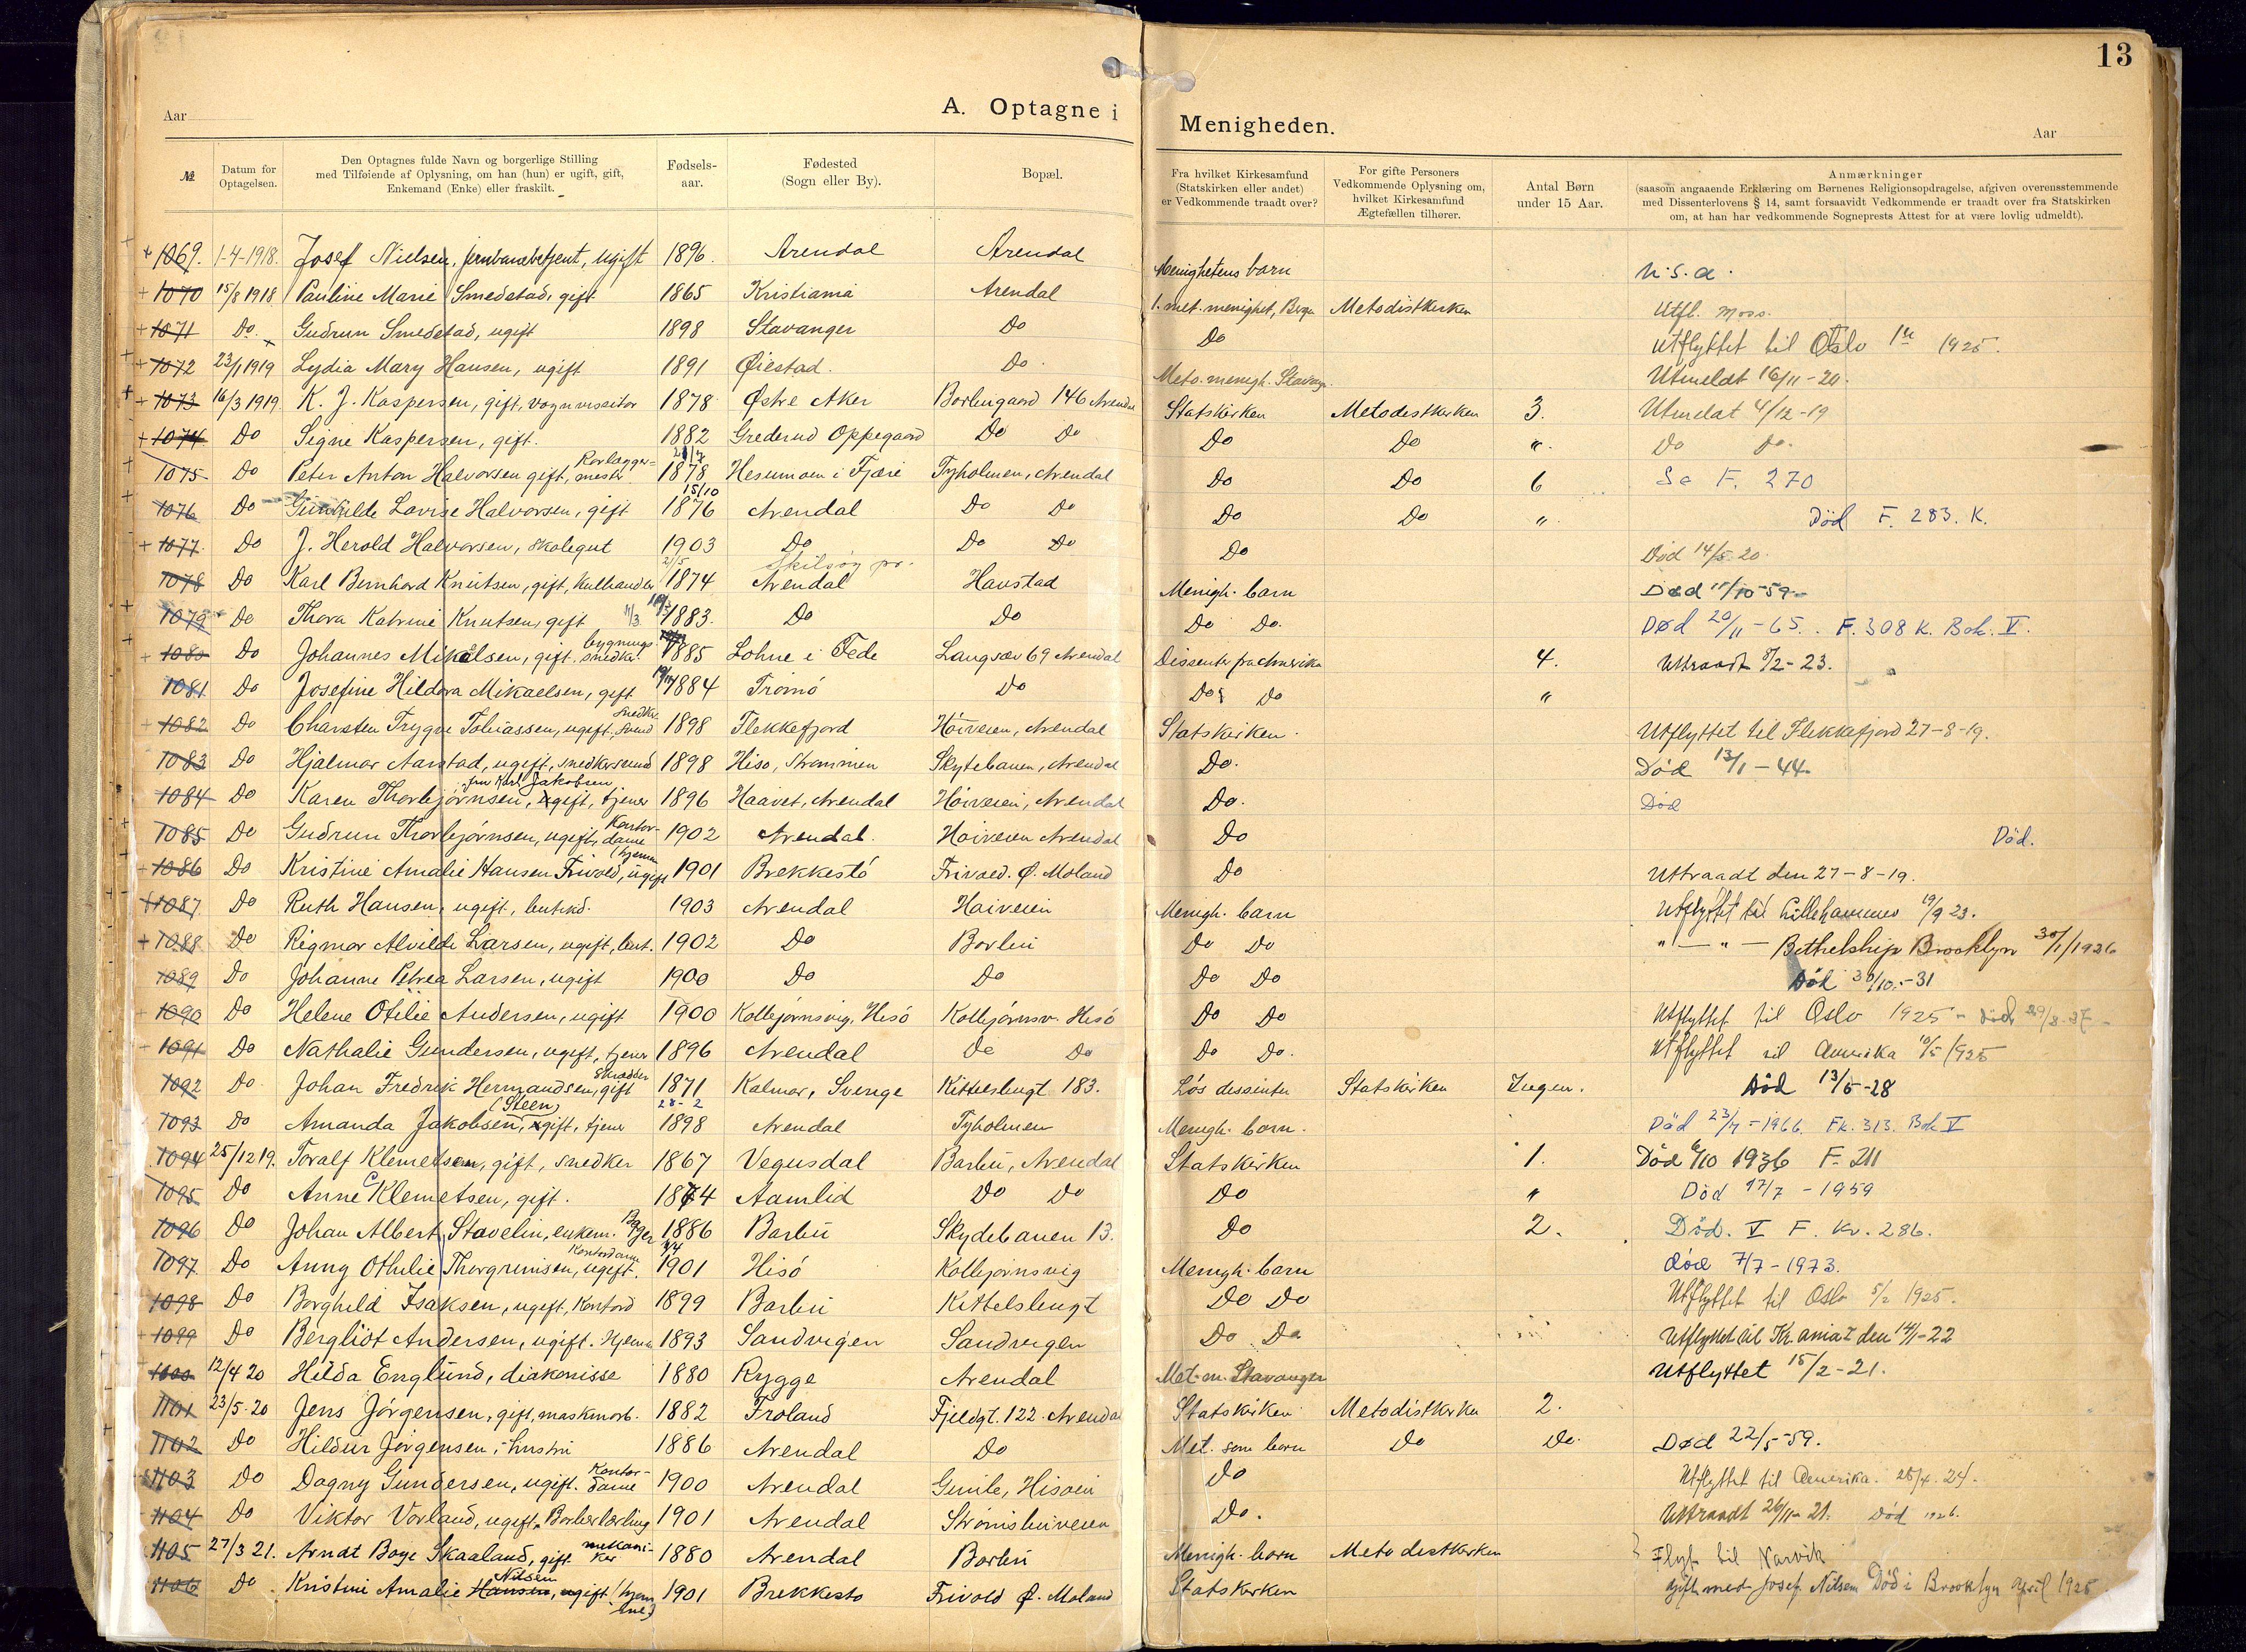 13
A. Optagne i Menigheden.
Aar Aar
№ | Datum for Optagelsen. | Den Optagnes fulde Navn og borgerlige Stilling med Tilføiende af Oplysning, om han (hun) er ugift, gift, Enkemand (Enke) eller fraskilt. | Fødselsaar. | Fødested (Sogn eller By). | Bopæl. | Fra hvilket Kirkesamfund (Statskirken eller andet) er Vedkommende traadt over? | For gifte Personers Vedkommende Oplysning om, hvilket Kirkesamfund Ægtefællen tilhører. | Antal Børn under 15 Aar. | Anmærkninger (saasom angaaende Erklæring om Børnenes Religionsopdragelse, afgiven overensstemmende med Dissenterlovens § 14, samt forsaavidt Vedkommende er traadt over fra Statskirken om, at han har vedkommende Sogneprests Attest for at være lovlig udmeldt).
1069. 1-4-1918. Josef Nielsen, jernbanebetjent, ugift 1896. Arendal Arendal Menighetens barn U.S.A.
1070 15/8 1918 Pauline Marie Smedstad, gift 1865 Kristiania Arendal 1. met. menighet, Bergen Metodistkirken Utfl. Moss.
1071 Do. Gudrun Smedstad, ugift 1898 Stavanger Do Do Utflyttet til Oslo 1925.
1072 23/1 1919 Lydia Mary Hansen, ugift 1891 Øiestad. Do. Meto. menigh. Stavanger. Utmeldt 16/11-20.
1073 16/3 1919. K. J. Kaspersen, gift, vognvisitør 1878 Østre Aker Barbugaard 146 Arendal Statskirken Metodistkirken 3. Utmeldt 4/12-19
1074 Do Signe Kaspersen, gift. 1882 Oppegaard Do Do Do Do ". Do Do.
1075 Do Peter Anton Halvorsen gift, Rørlæggermester 1878 i Fjære Tyholmen, Arendal Do Do 6 Se F. 270
1076 Do Gunhilde Lovise Halvorsen, gift 15/10 1876 Arendal Do Do Do Do ". Død F. 283. K.
1077. Do J. Herold Halvorsen, skolegut 1903 Do Do Do Do Død 14/5 20.
1078 Do Karl Bernhard Knutsen, gift, kulhandler 21/5 1874 Arendal Havstad Menigh. barn Død 11/10-59
1079 Do Thora Katrine Knutsen, gift 11/3 1883. Do Do Do Do. Død 20/11-65. F. 308 K. Bok. V.
1080 Do Johannes Mikalsen, gift, bygningssnedker 1885 Lohne i Fede Langsæv 69 Arendal Dissenter fra Amerika 4. Uttraadt 8/2-23.
1081 Do Josefine Hildora Mikaelsen, gift 1884 Tromö Do Do Do "
1082 Do Charsten Trygve Tobiassen, ugift, snedkersvend 1898 Flekkefjord Høiveien, Arendal Statskirken. Utflyttet til Flekkefjord 27-8-19.
1083 Do Hjalmar Aarstad, ugift, snedkersvend 1898 Hisø, Strømmen Skytebanen, Arendal Do. Død 13/1-44
1084 Do Karen Thorbjørnsen, fru Karl Jakobsen gift, tjener 1896 Haavet, Arendal Høiveien, Arendal Do. Død
1085 Do Gudrun Thorbjørnsen, ugift, Kontordame 1902 Arendal. Høiveien Arendal Do Død.
1086 Do Kristine Amalie Hansen Frivold, ugift (hjemme 1901 Brekkestö Frivold. Ø. Moland Do Uttraadt den 27-8-19.
1087 Do Ruth Hansen, ugift, butikd. 1903 Arendal Høiveien Menigh. barn Utflyttet til Lillehammer 19/9 23.
1088 Do Rigmor Alvilde Larsen, ugift, but. 1902 Do Barbu Do Do " — " — Bethelship Brooklyn 30/1/1926
1089 Do Johanne Petrea Larsen, ugift 1900 Do Do Do Do Død 30/10-31
1090 Do Helene Otilie Andersen, ugift 1900 Kolbjørnsvig, Hisö Kolbjørnsv. Hisö Do Do Utflyttet til Oslo 1925 - død 29/8-37
1091 Do Nathalie Gundersen, ugift, tjener 1896 Arendal Do Do Do Do. Utflyttet til Amerika 10/5 1925
1092 Do Johan Fredrik Hermandsen, gift Skrædder 1871 Kalmar, Sverige Kittelsbugt 183. Løs dissenter Statskirken Ingen. Død 13/5-28
1093 Do Amanda Jakobsen, (Steen) gift, tjener 28-2 1898 Arendal Tyholmen Menigh. barn. Død 23/7-1966. Fk. 313. Bok V
1094 25/12 19. Toralf Klemetsen, gift, snedker 1867 Vegusdal Barbu, Arendal Statskirken 1. Død 6/10 1936 F. 211
1095 Do Anne C Klemetsen, gift. 1874 Aamlid Do Do Do " Død 17/7-1959
1096 Do Johan Albert Stavelin, enkem. Bager 1886 Barbu Skydebanen 13. Do 2. Død. V F. Kv. 286.
1097 Do Anny Othilie Thorgrimsen, ugift. Kontordame 1901 Hisö Kolbjørnsvig Menigh. barn død 7/7-1973.
1098 Do Borghild Isaksen, ugift, Kontord 1899 Barbu Kittelsbugt Do Do Utflyttet til Oslo 5/2 1925.
1099 Do Bergliot Andersen, ugift. Hjemme 1893 Sandvigen Sandvigen Do Do Utflyttet til Kr.ania I den 14/1-22
1100 12/4 20 Hilda Englund, diakonisse 1880 Rygge Arendal Met. m. Stavanger Utflyttet 15/2-21.
1101 23/5-20 Jens Jørgensen, gift, maskinarb. 1882 Froland Fjeldgt. 122. Arendal Statskirken Metodistkirken 2.
1102 Do Hildur Jørgensen, hustru 1886 Arendal Do Met. som barn Do Do. Død 22/5-59.
1103 Do Dagny Gundersen, ugift. Kontordame 1900 Arendal Gimle, Hisøen Do Utflyttet til Amerika. 25/4.24.
1104 Do Viktor Vorland, ugift, Barberlærling 1901 Arendal Strømsbuveien Do. Uttraadt 26/11-21. Død 1926.
1105 27/3 21. Arndt Boye Skaaland, gift. mekaniker 1880 Arendal Barbu Menigh. barn Metodistkirken Flyt. til Narvik
1106 Do Kristine Amalie Hansen Nilsen, gift (hjemme) 1901 Brekkestø Frivold Ø. Moland Statskirken gift med Josef Nilsen Død i Brooklyn april 1925